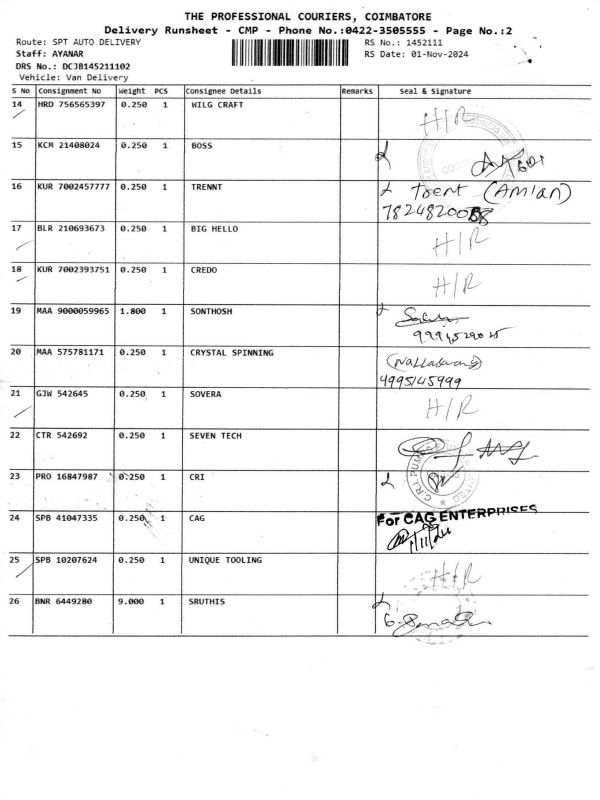 THE PROFESSIONAL COURIERS, COIMBATORE
Delivery Runsheet - CMP - Phone No.:0422-3505555 - Page No.:2
Route: SPT AUTO DELIVERY RS No.: 1452111
Staff: AYANAR RS Date: 01-Nov-2024
DRS No.: DCJB145211102
Vehicle: Van Delivery
S No Consignment No Weight PCS Consignee Details Remarks Seal & Signature
14 HRD 756565397 0.250 1 WILG CRAFT H/R
15 KCM 21408024 0.250 1 BOSS
16 KUR 7002457777 0.250 1 TRENNT Trent (Amian)
17 BLR 210693673 0.250 1 BIG HELLO H/R
18 KUR 7002393751 0.250 1 CREDO H/R
19 MAA 9000059965 1.800 1 SONTHOSH
20 MAA 575781171 0.250 1 CRYSTAL SPINNING
4995145999
21 GJW 542645 0.250 1 SOVERA H/R
22 CTR 542692 0.250 1 SEVEN TECH
23 PRO 16847987 0.250 1 CRI
24 SPB 41047335 0.250 1 CAG For CAG ENTERPRISES
25 SPB 10207624 0.250 1 UNIQUE TOOLING H/R
26 BNR 6449280 9.000 1 SRUTHIS